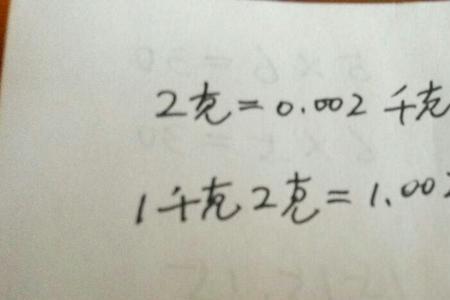 2克=0.002 千克
1千克2克=1.002